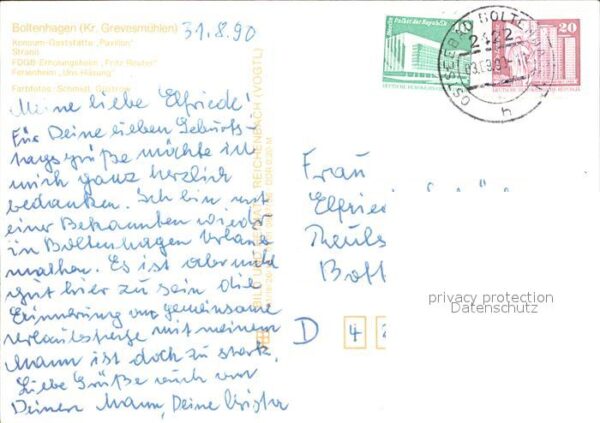 Boltenhagen (Kr. Grevesmühlen)
31.8.90
Konsum-Gaststätte „Pavillon"
Strand
FDGB-Erholungsheim „Fritz Reuter"
Ferienheim „Uns Hüsung"
Farbfotos: Schmidt, Güstrow
Meine liebe Elfriede!
Für Deine lieben Geburts-
tagsgrüße möchte ich
mich ganz herzlich
bedanken. Ich bin mit
einer Bekannten wieder
in Boltenhagen Urlaub
machen. Es ist aber nicht
gut hier zu sein die
Erinnerung an gemeinsame
Urlaubstage mit meinem
Mann ist doch zu stark.
Liebe Grüße auch von
Deinem Mann, Deine
BILD UND HEIMAT REICHENBACH (VOGTL)
Palast der Republik
20
OSTSEEBAD BOLTENHAGEN
2422
4
Frau
Elfried
Bott
D 4 2
privacy protection
Datenschutz